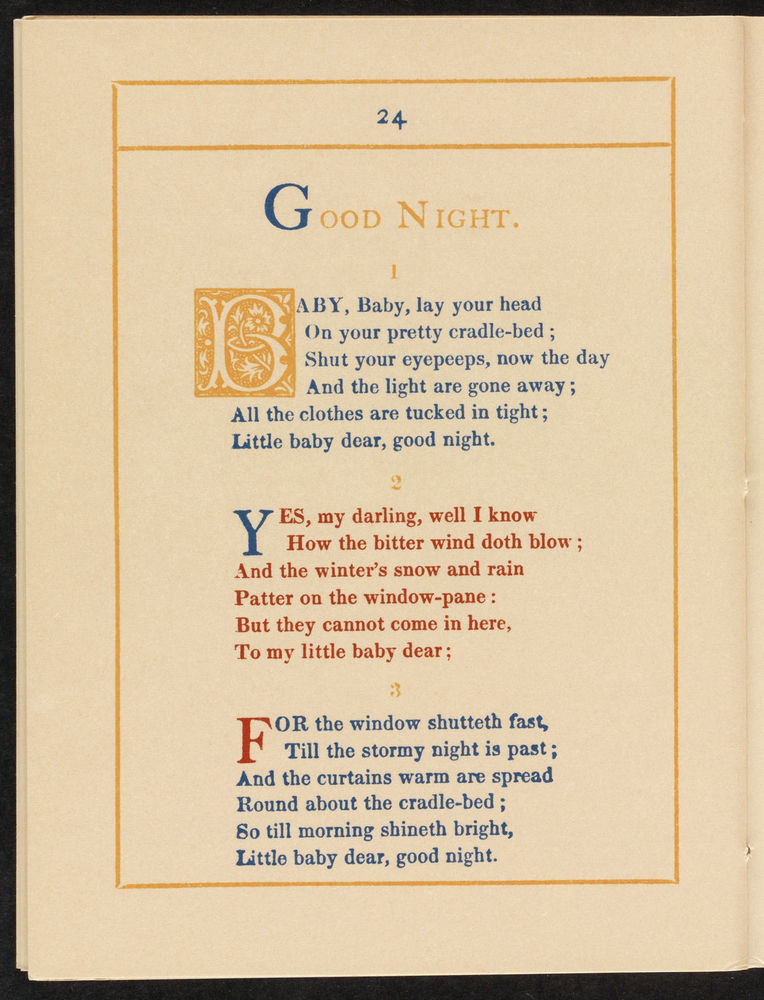 24
GOOD NIGHT.
1
BABY, Baby, lay your head
On your pretty cradle-bed ;
Shut your eyepeeps, now the day
And the light are gone away ;
All the clothes are tucked in tight ;
Little baby dear, good night.
2
YES, my darling, well I know
How the bitter wind doth blow ;
And the winter's snow and rain
Patter on the window-pane :
But they cannot come in here,
To my little baby dear ;
3
FOR the window shutteth fast,
Till the stormy night is past ;
And the curtains warm are spread
Round about the cradle-bed ;
So till morning shineth bright,
Little baby dear, good night.